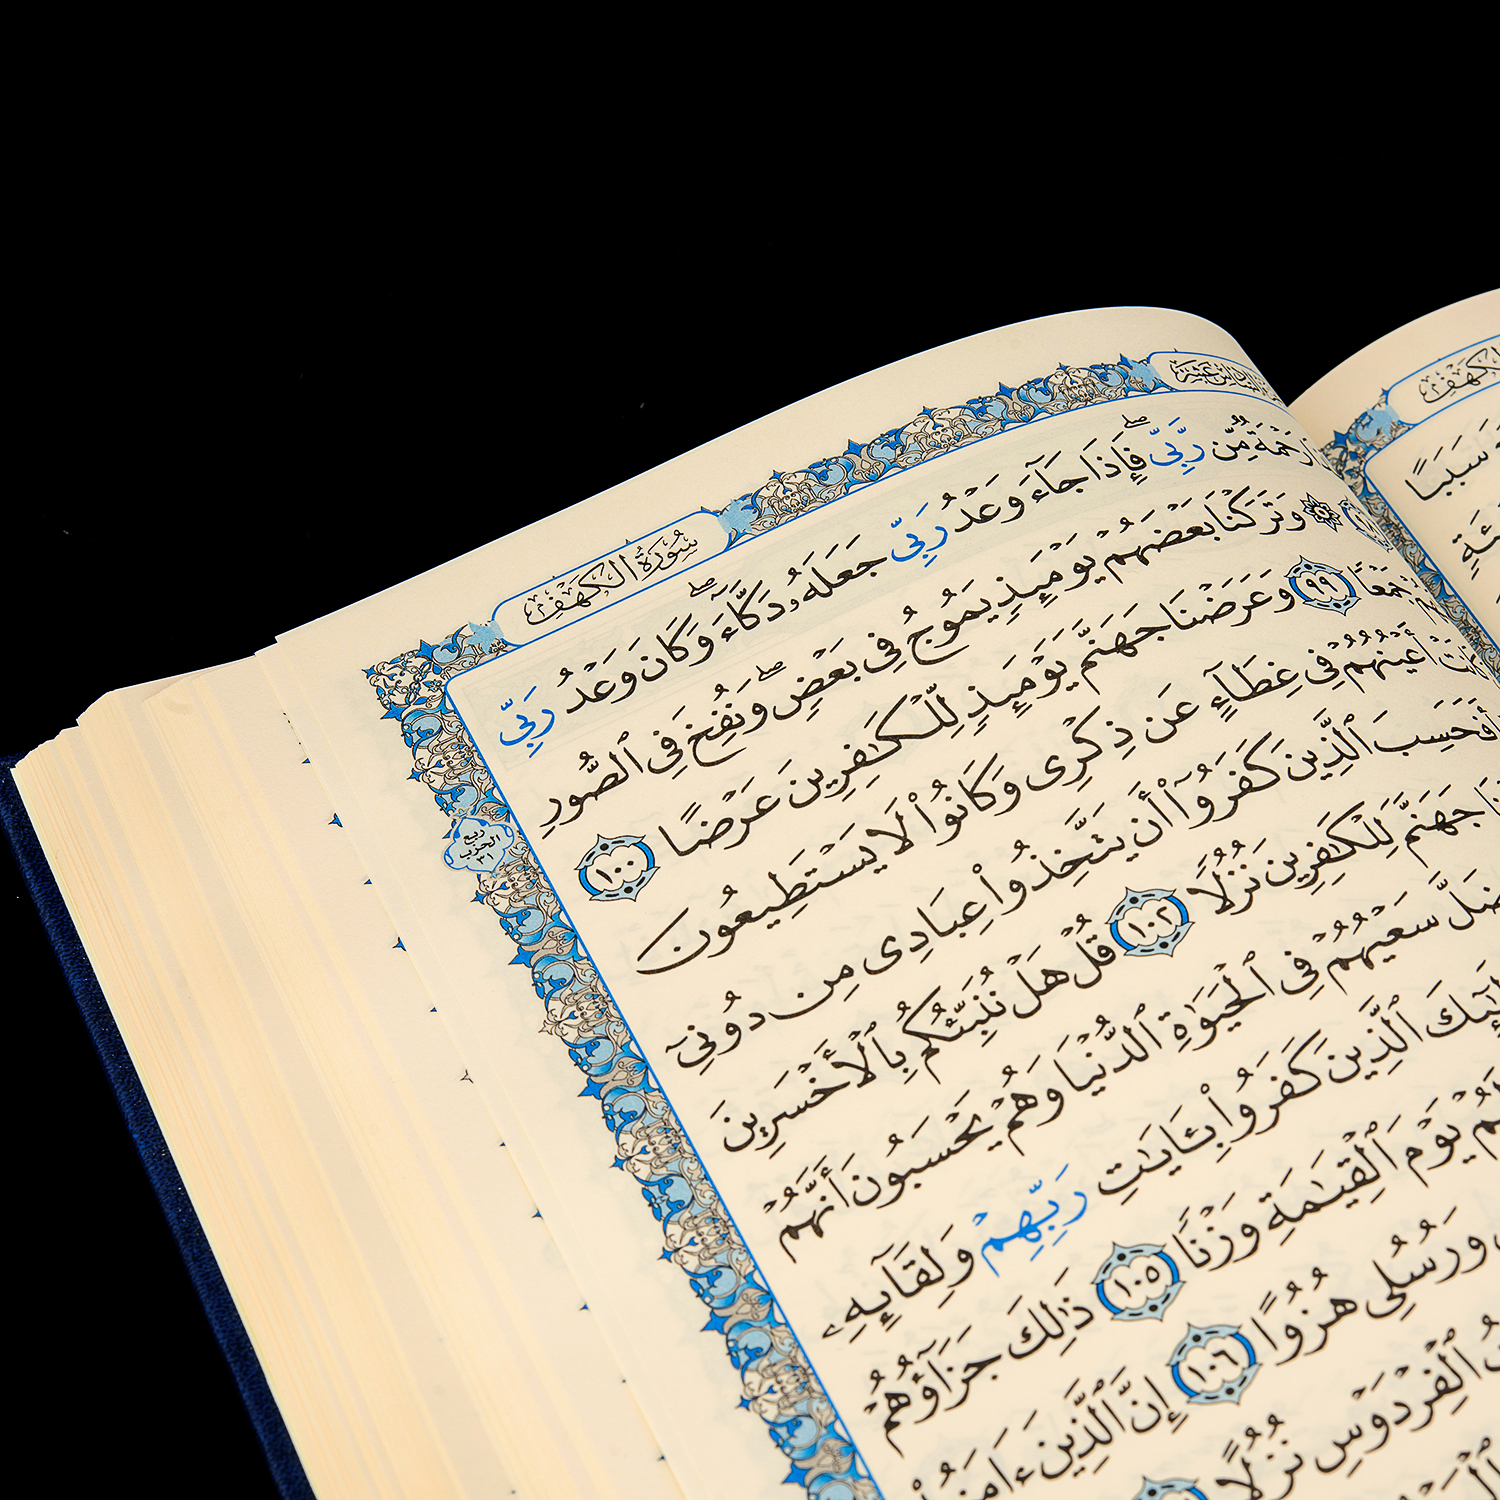 سُورَةُ الكَهْفِ
السَّادِسَ عَشَرَ
رَحْمَةٌ مِّن رَّبِّى ۖ فَإِذَا جَآءَ وَعْدُ رَبِّى جَعَلَهُۥ دَكَّآءَ ۖ وَكَانَ وَعْدُ رَبِّى
وَتَرَكْنَا بَعْضَهُمْ يَوْمَئِذٍ يَمُوجُ فِى بَعْضٍ ۖ وَنُفِخَ فِى ٱلصُّورِ
جَمْعًا ٩٩ وَعَرَضْنَا جَهَنَّمَ يَوْمَئِذٍ لِّلْكَٰفِرِينَ عَرْضًا ١٠٠
أَعْيُنُهُمْ فِى غِطَآءٍ عَن ذِكْرِى وَكَانُوا۟ لَا يَسْتَطِيعُونَ
أَفَحَسِبَ ٱلَّذِينَ كَفَرُوٓا۟ أَن يَتَّخِذُوا۟ عِبَادِى مِن دُونِىٓ
جَهَنَّمَ لِلْكَٰفِرِينَ نُزُلًا ١٠٢ قُلْ هَلْ نُنَبِّئُكُم بِٱلْأَخْسَرِينَ
ضَلَّ سَعْيُهُمْ فِى ٱلْحَيَوٰةِ ٱلدُّنْيَا وَهُمْ يَحْسَبُونَ أَنَّهُمْ
ٱلَّذِينَ كَفَرُوا۟ بِـَٔايَٰتِ رَبِّهِمْ وَلِقَآئِهِۦ
يَوْمَ ٱلْقِيَٰمَةِ وَزْنًا ١٠٥ ذَٰلِكَ جَزَآؤُهُمْ
وَرُسُلِى هُزُوًا ١٠٦ إِنَّ ٱلَّذِينَ ءَامَنُوا۟
ٱلْفِرْدَوْسِ نُزُلًا
ربع
الحزب
٣١
الكَهْفِ
سَبَبًا